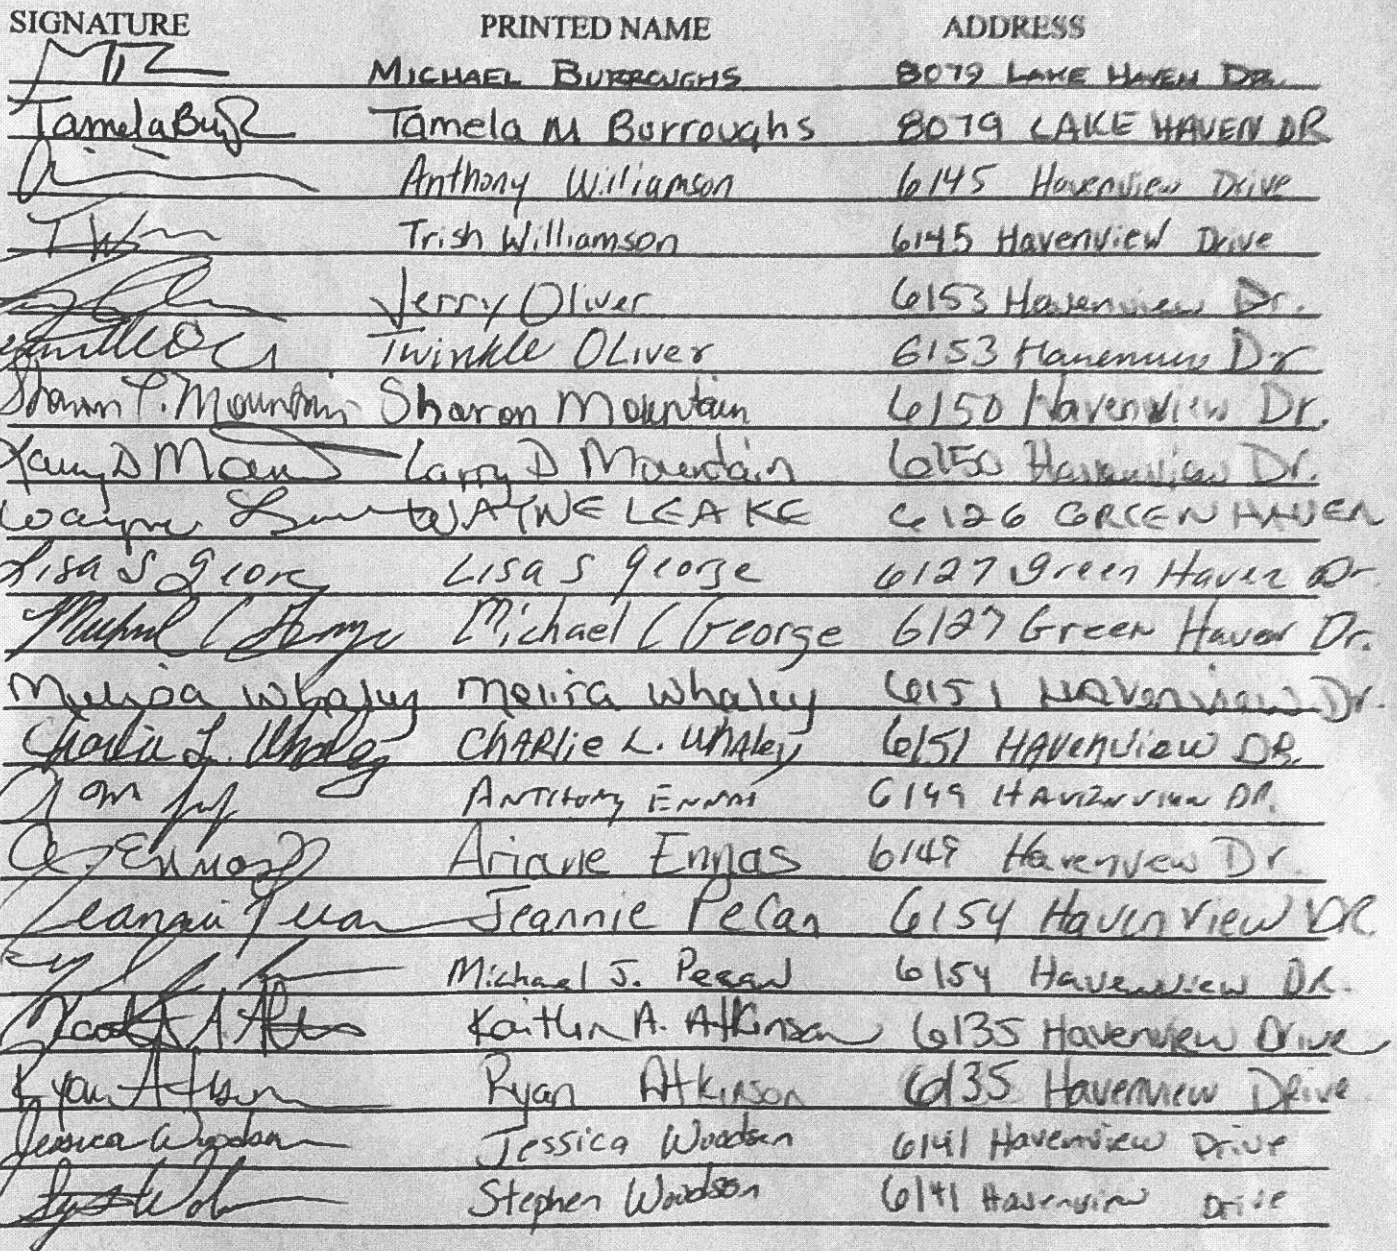 SIGNATURE PRINTED NAME ADDRESS
MICHAEL BURROUGHS 8079 LAKE HAVEN DR.
Tamela Tamela M Burroughs 8079 LAKE HAVEN DR
Anthony Williamson 6145 Havenview Drive
Trish Williamson 6145 Havenview Drive
Jerry Oliver 6153 Havenview Dr.
Twinkle OLiver 6153 Havenview Dr
Sharon T. Mountain Sharon Mountain 6150 Havenview Dr.
Larry D Larry D Mountain 6150 Havenview Dr.
Wayne WAYNE LEAKE 6126 GREEN HAVEN
Lisa S George Lisa S george 6127 Green Haven Dr
Michael C George Michael C George 6127 Green Haven Dr.
Melisa Whaley Melisa Whaley 6151 Havenview Dr.
Charlie L. Whaley CHARlie L. WHAley 6151 HAVenview DR.
ANTHONY 6149 HAVENVIEW DR.
Ariane Ennas 6149 Havenview Dr.
Jeannie Jeannie PeCan 6154 Haven View DR
Michael J. Pecan 6154 Havenview DR.
Kaitlin A. Atkinson 6135 Havenview Drive
Ryan Atkinson Ryan Atkinson 6135 Havenview Drive
Jessica Woodson Jessica Woodson 6141 Havenview Drive
Stephen Woodson 6141 Havenview Drive